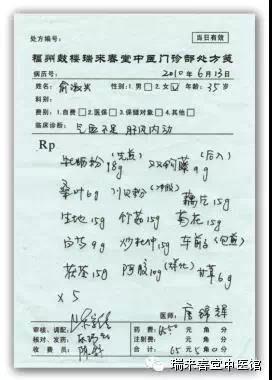 处方编号: 当日有效
福州鼓楼瑞来春堂中医门诊部处方笺
病历号: 2010年6月13日
姓名: 俞淑 性别: 1.男 2.女 年龄: 35岁
科别:
费别: 1.自费 2.医保 3.保健对象 4.其他
临床诊断: 气血不足 肝风内动
Rp
牡蛎粉(先煎)18g 双钩藤(后入)9g
桑叶6g 川贝粉(冲服) 藕片15g
生地15g 竹茹15g 菊花15g
白芍9g 15g 车前子(包煎)
茯苓15g 阿胶10g(烊化) 甘草6g
×5
医师: 唐
审核、调配: 药费: 元 角 分
核对、发药: 注射费: 元 角 分
收费员: 合计: 元 角 分
瑞来春堂中医馆